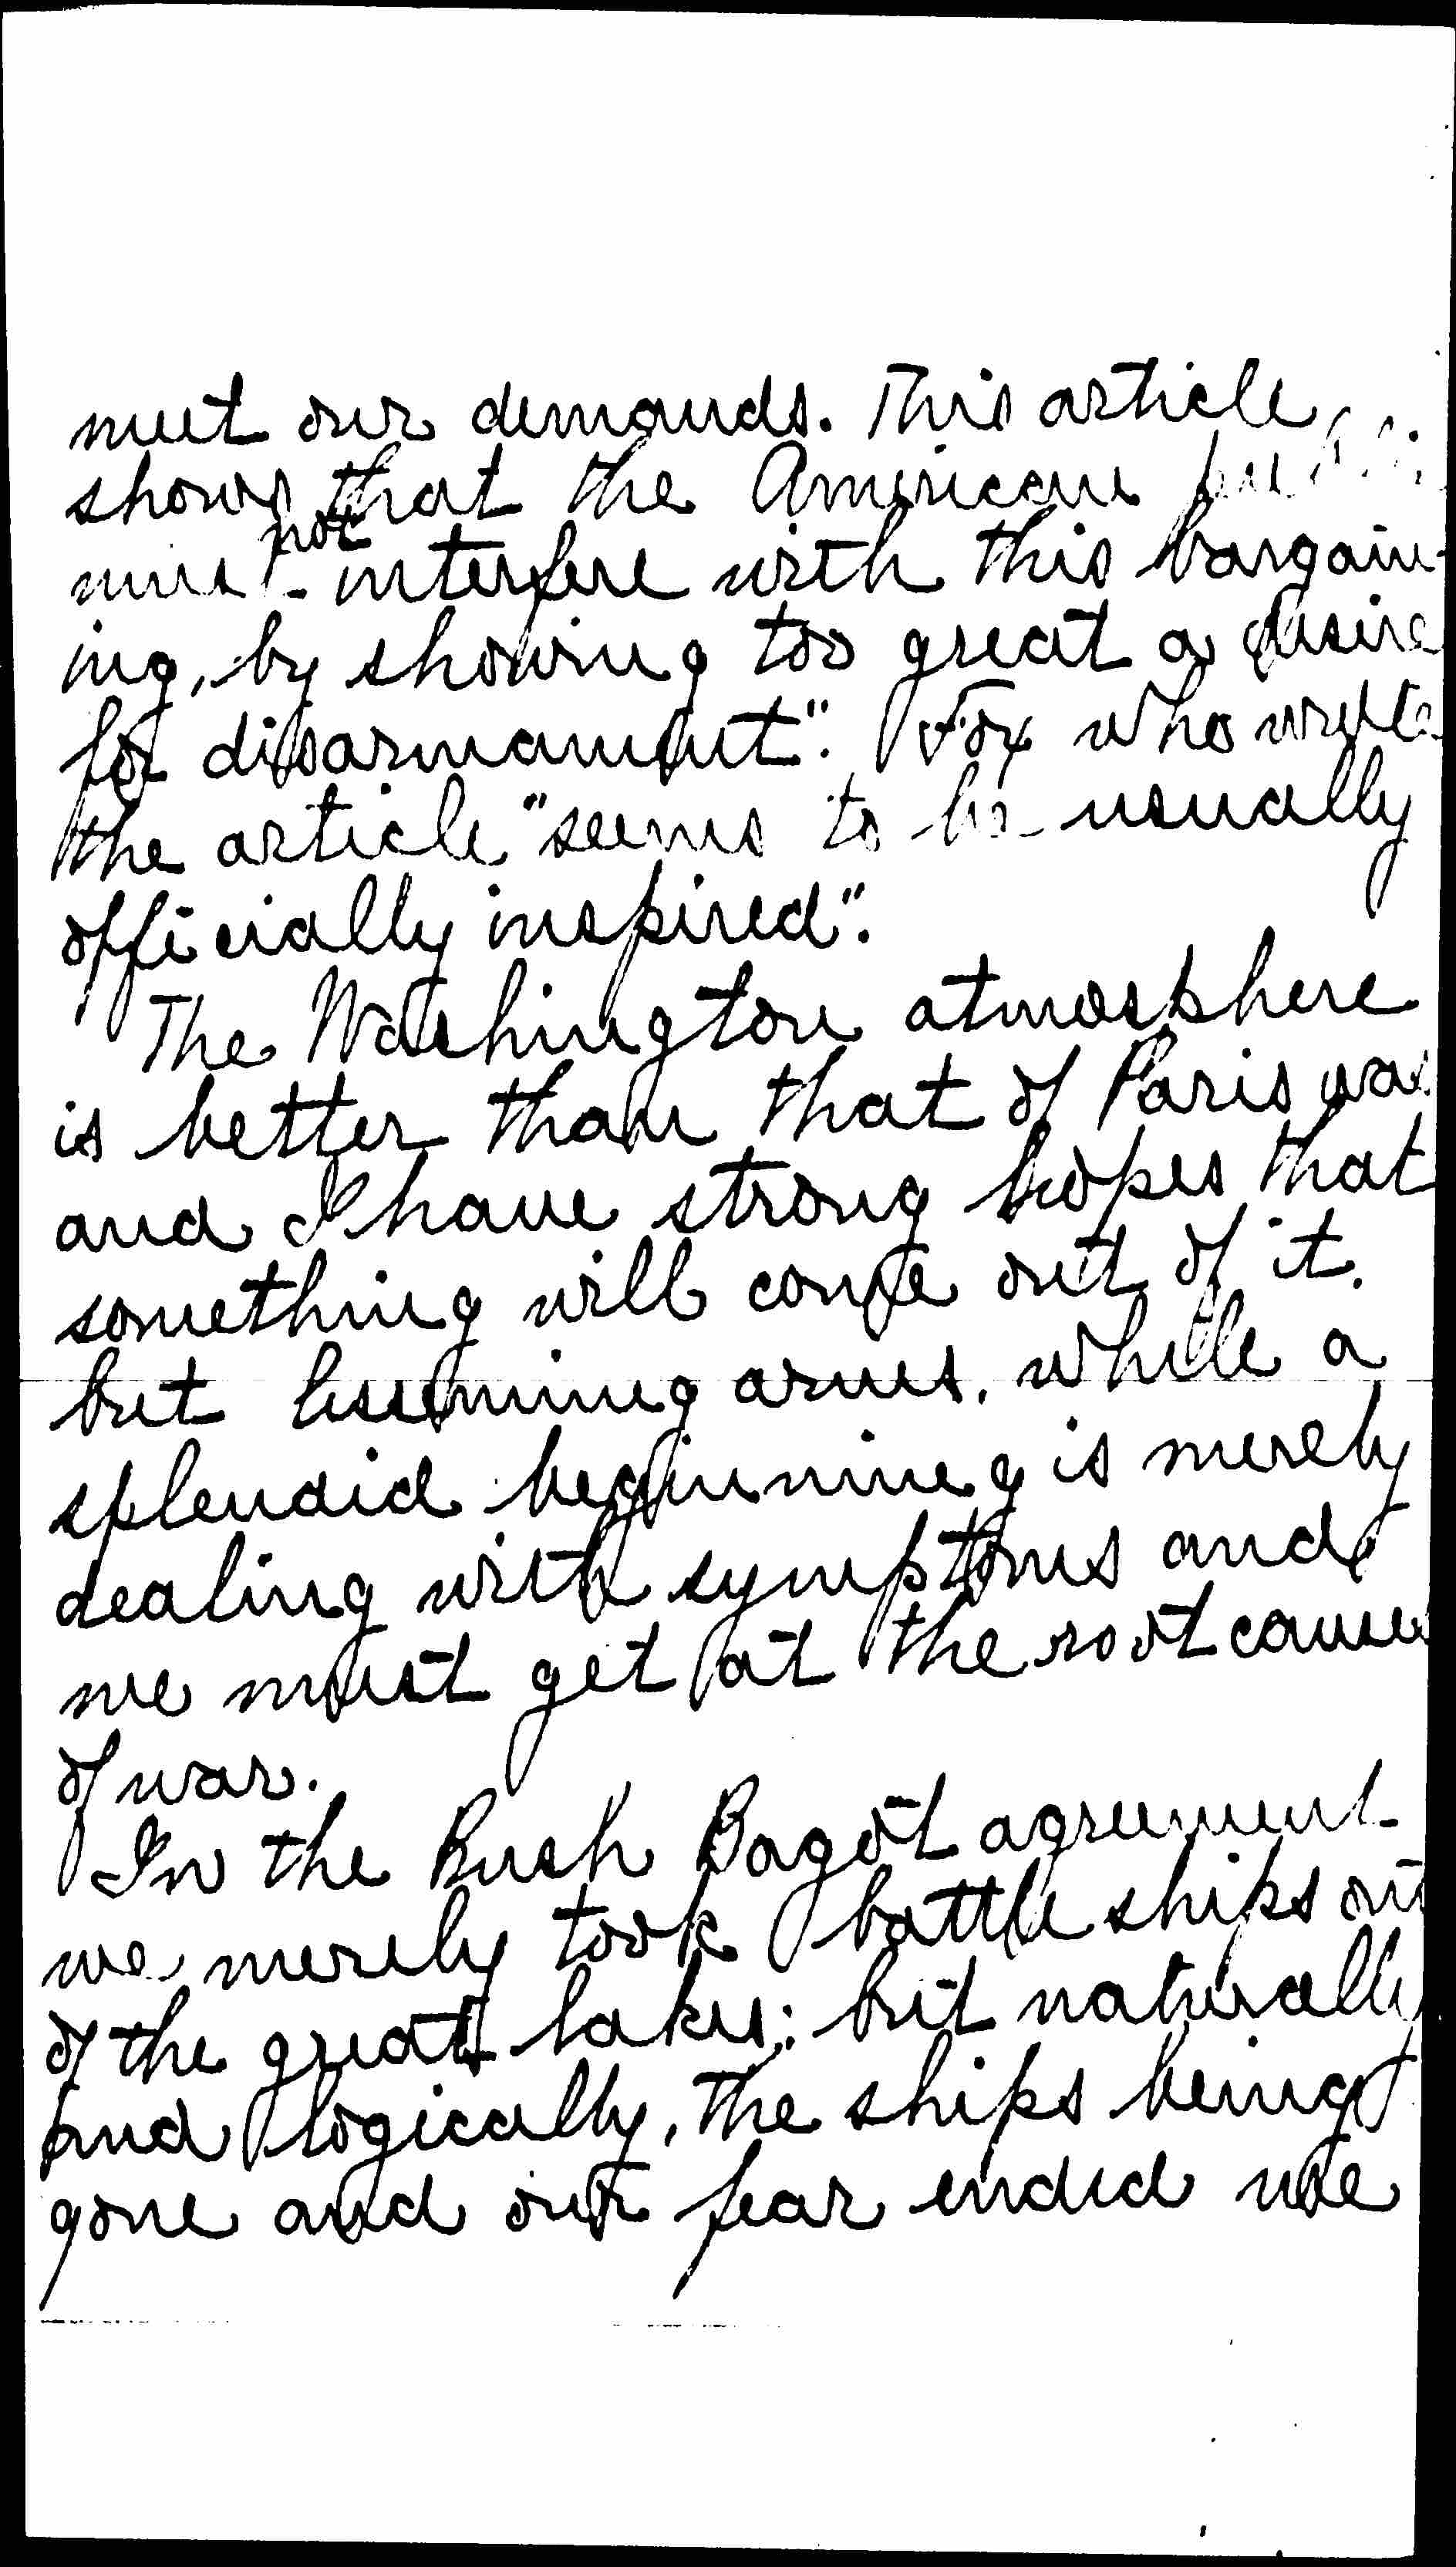 meet our demands. This article
shows that the American public
must not interfere with this bargain-
ing, by showing too great a desire
for disarmament". Fox who wrote
the article "seems to be usually
officially inspired".
The Washington atmosphere
is better than that of Paris was
and I have strong hopes that
something will come out of it.
but lessening arms, while a
splendid beginning is merely
dealing with symptoms and
we must get at the root causes
of war.
In the Rush Bagot agreement
we merely took battle ships out
of the great lakes; but naturally
and logically, the ships being
gone and our fear ended we